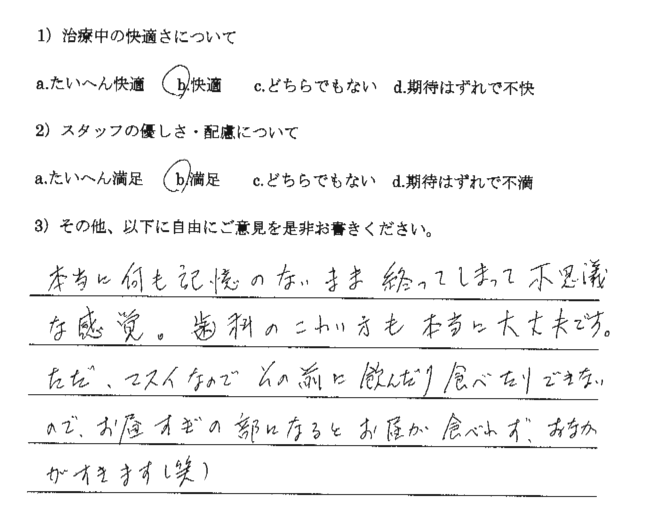 1）治療中の快適さについて
a.たいへん快適 b.快適 c.どちらでもない d.期待はずれで不快
2）スタッフの優しさ・配慮について
a.たいへん満足 b.満足 c.どちらでもない d.期待はずれで不満
3）その他、以下に自由にご意見を是非お書きください。
本当に何も記憶のないまま終ってしまって不思議
な感覚。歯科のこわい方も本当に大丈夫です。
ただ、マスイなのでその前に飲んだり食べたりできない
ので、お昼すぎの部になるとお昼が食べれず、おなか
がすきます(笑)